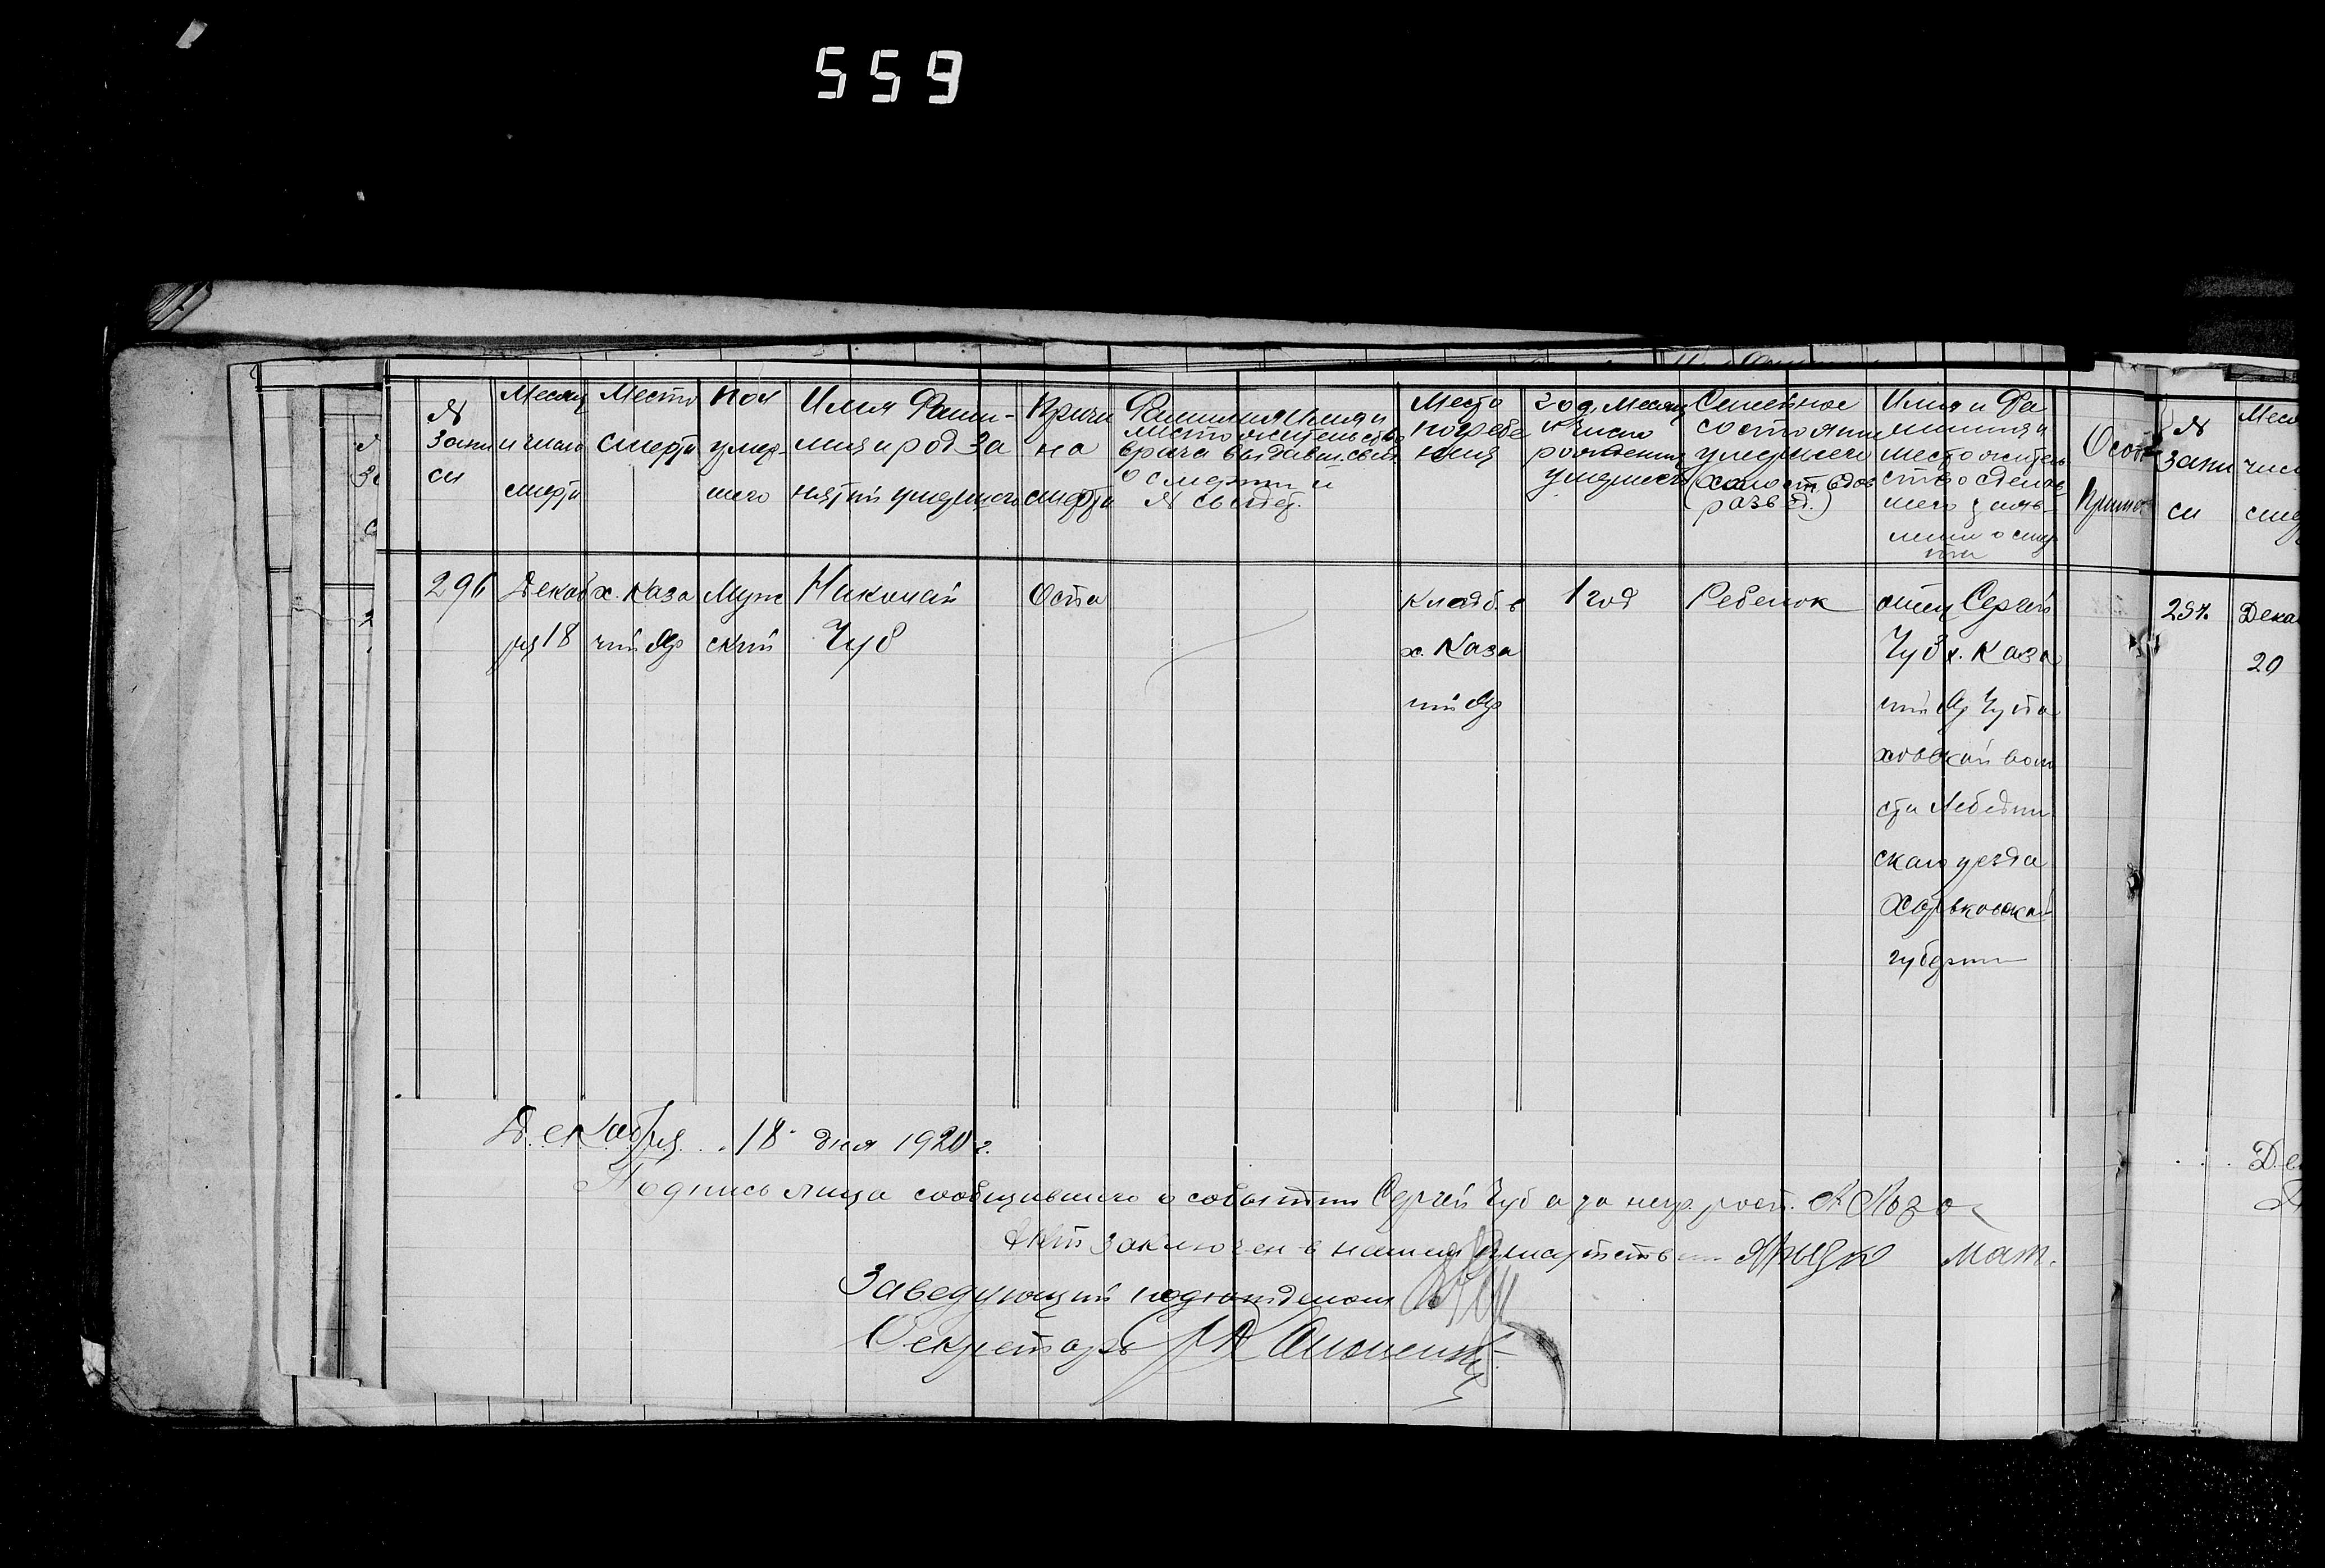 559
№ Запи си
Месяц и число смерти
Место смерти
Пол умер- шего
Имя Фами- лия и род За нятий умершего
Причи на смерти
Фамилия Имя и место жительство врача выдавш. свид о смерти и № свидет.
Место погребе ния
Год, Месяц и число рождения умершего
Семейное состояние умершего (холост вдов развед.)
Имя и Фа милия и место житель ство сделав шего заяв- лении о смер ти
Особ
Примеч
№ запи си
296
Декаб ря 18
х. Каза чий Яр
Муж ский
Николай Чуб
Оспа
Кладб. в х. Каза чий Яр
1 год
Ребенок
отец Сергей
Чуб х. Каза
чий Яр Чупа
ховской воло
сти Лебедин
скаго уезда
Харьковской
губернии
297.
Дека
20
Декабря 18 дня 1920 г.
Подпись лица сообщившего о событии Сергей Чуб а за негр. расп.
Акт заключен в нашем присутствии
Заведующий подотделом
Секретарь